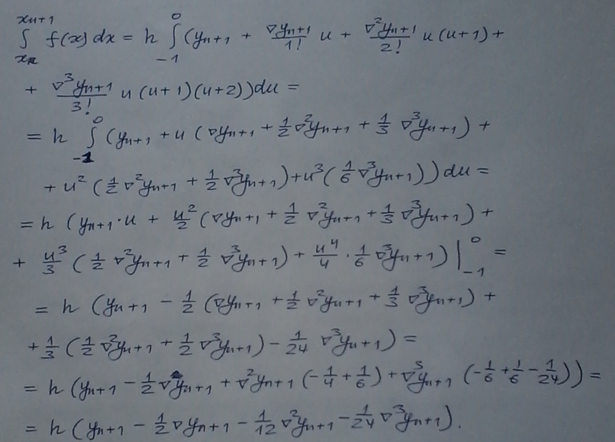 ∫_{xₙ}^{xₙ₊₁} f(x)dx = h ∫_{-1}^{0} (yₙ₊₁ + ∇yₙ₊₁/1! u + ∇²yₙ₊₁/2! u(u+1) +
+ ∇³yₙ₊₁/3! u(u+1)(u+2))du =
= h ∫_{-1}^{0} (yₙ₊₁ + u(∇yₙ₊₁ + 1/2 ∇²yₙ₊₁ + 1/3 ∇³yₙ₊₁) +
+ u²(1/2 ∇²yₙ₊₁ + 1/2 ∇³yₙ₊₁) + u³(1/6 ∇³yₙ₊₁))du =
= h (yₙ₊₁·u + u²/2 (∇yₙ₊₁ + 1/2 ∇²yₙ₊₁ + 1/3 ∇³yₙ₊₁) +
+ u³/3 (1/2 ∇²yₙ₊₁ + 1/2 ∇³yₙ₊₁) + u⁴/4 · 1/6 ∇³yₙ₊₁) |_{-1}^{0} =
= h (yₙ₊₁ - 1/2 (∇yₙ₊₁ + 1/2 ∇²yₙ₊₁ + 1/3 ∇³yₙ₊₁) +
+ 1/3 (1/2 ∇²yₙ₊₁ + 1/2 ∇³yₙ₊₁) - 1/24 ∇³yₙ₊₁) =
= h (yₙ₊₁ - 1/2 ∇yₙ₊₁ + ∇²yₙ₊₁ (-1/4 + 1/6) + ∇³yₙ₊₁ (-1/6 + 1/6 - 1/24)) =
= h (yₙ₊₁ - 1/2 ∇yₙ₊₁ - 1/12 ∇²yₙ₊₁ - 1/24 ∇³yₙ₊₁).